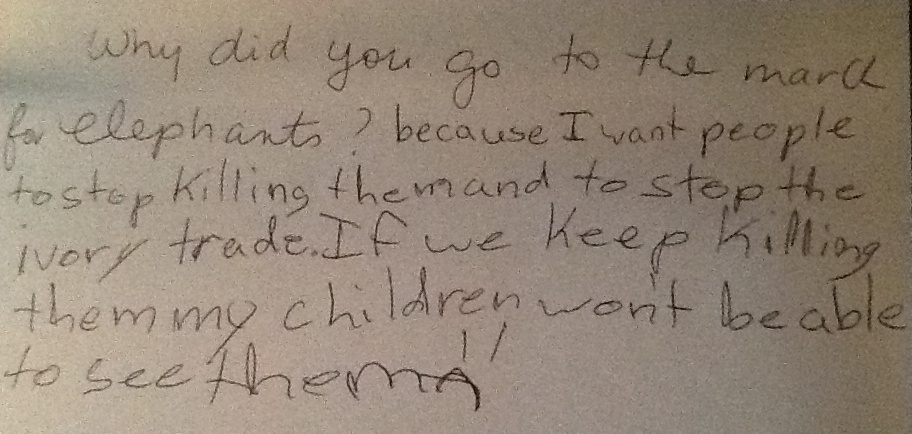 Why did you go to the march
for elephants? because I want people
to stop killing them and to stop the
ivory trade. If we keep killing
them my children won't be able
to see them!!